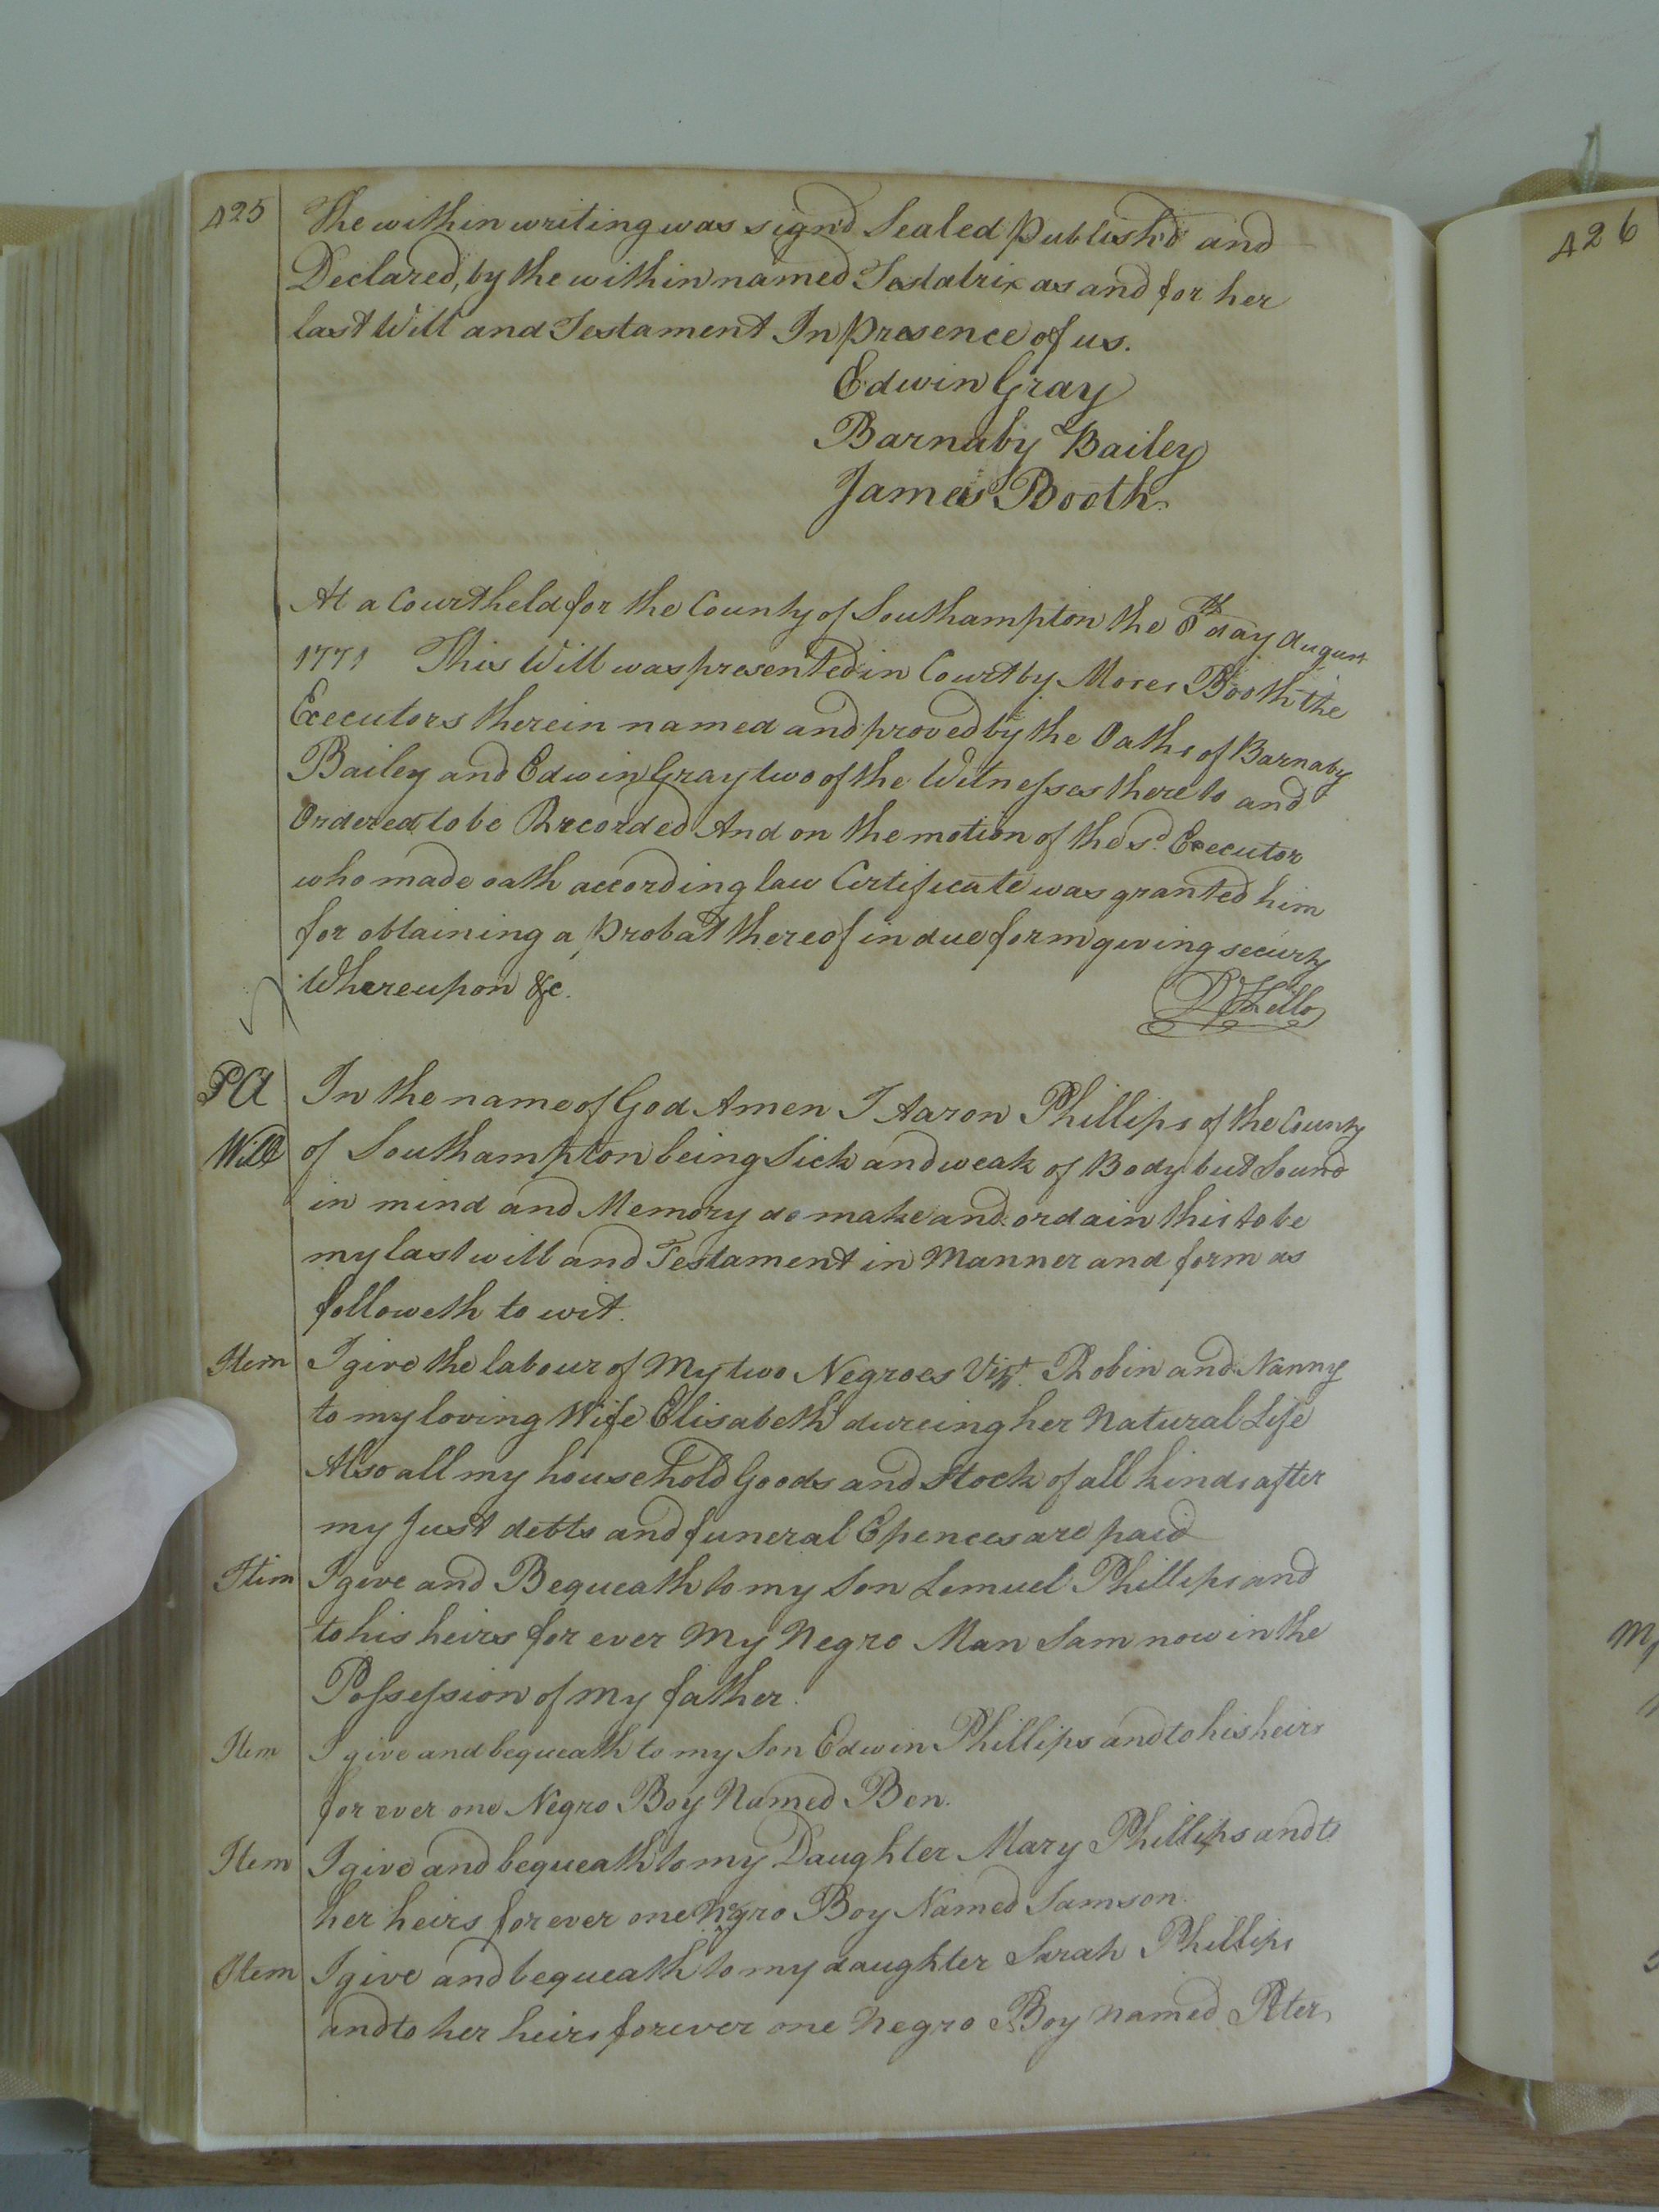 425
The within writing was sign'd Sealed Publish'd and
Declared, by the within named Testatrix as and for her
last Will and Testament In presence of us.
Edwin Gray
Barnaby Bailey
James Booth
At a Court held for the County of Southampton the 8th day August
1771 This Will was presented in Court by Moses Booth the
Executors therein named and proved by the Oaths of Barnaby
Bailey and Edwin Gray two of the Witnesses thereto and
Ordered to be Recorded And on the motion of the sd. Executor
who made oath according law Certificate was granted him
for obtaining a Probat thereof in due form giving securty
Whereupon &c.
PA
Will
In the name of God Amen I Aaron Phillips of the County
of Southampton being Sick and weak of Body but Sound
in mind and Memory do make and ordain this to be
my last will and Testament in Manner and form as
followeth to wit.
Item I give the labour of My two Negroes Vizt. Robin and Nanny
to my loving Wife Elisabeth dureing her Natural Life
Also all my household Goods and Stock of all kinds after
my Just debts and funeral Epences are paid
Item I give and Bequeath to my Son Lemuel Phillips and
to his heirs for ever My Negro Man Sam now in the
Possession of my father.
Item I give and bequeath to my Son Edwin Phillips and to his heirs
for ever one Negro Boy Named Ben.
Item I give and bequeath to my Daughter Mary Phillips and to
her heirs for ever one Negro Boy Named Samson.
Item I give and bequeath to my daughter Sarah Phillips
and to her heirs forever one Negro Boy named Peter
426